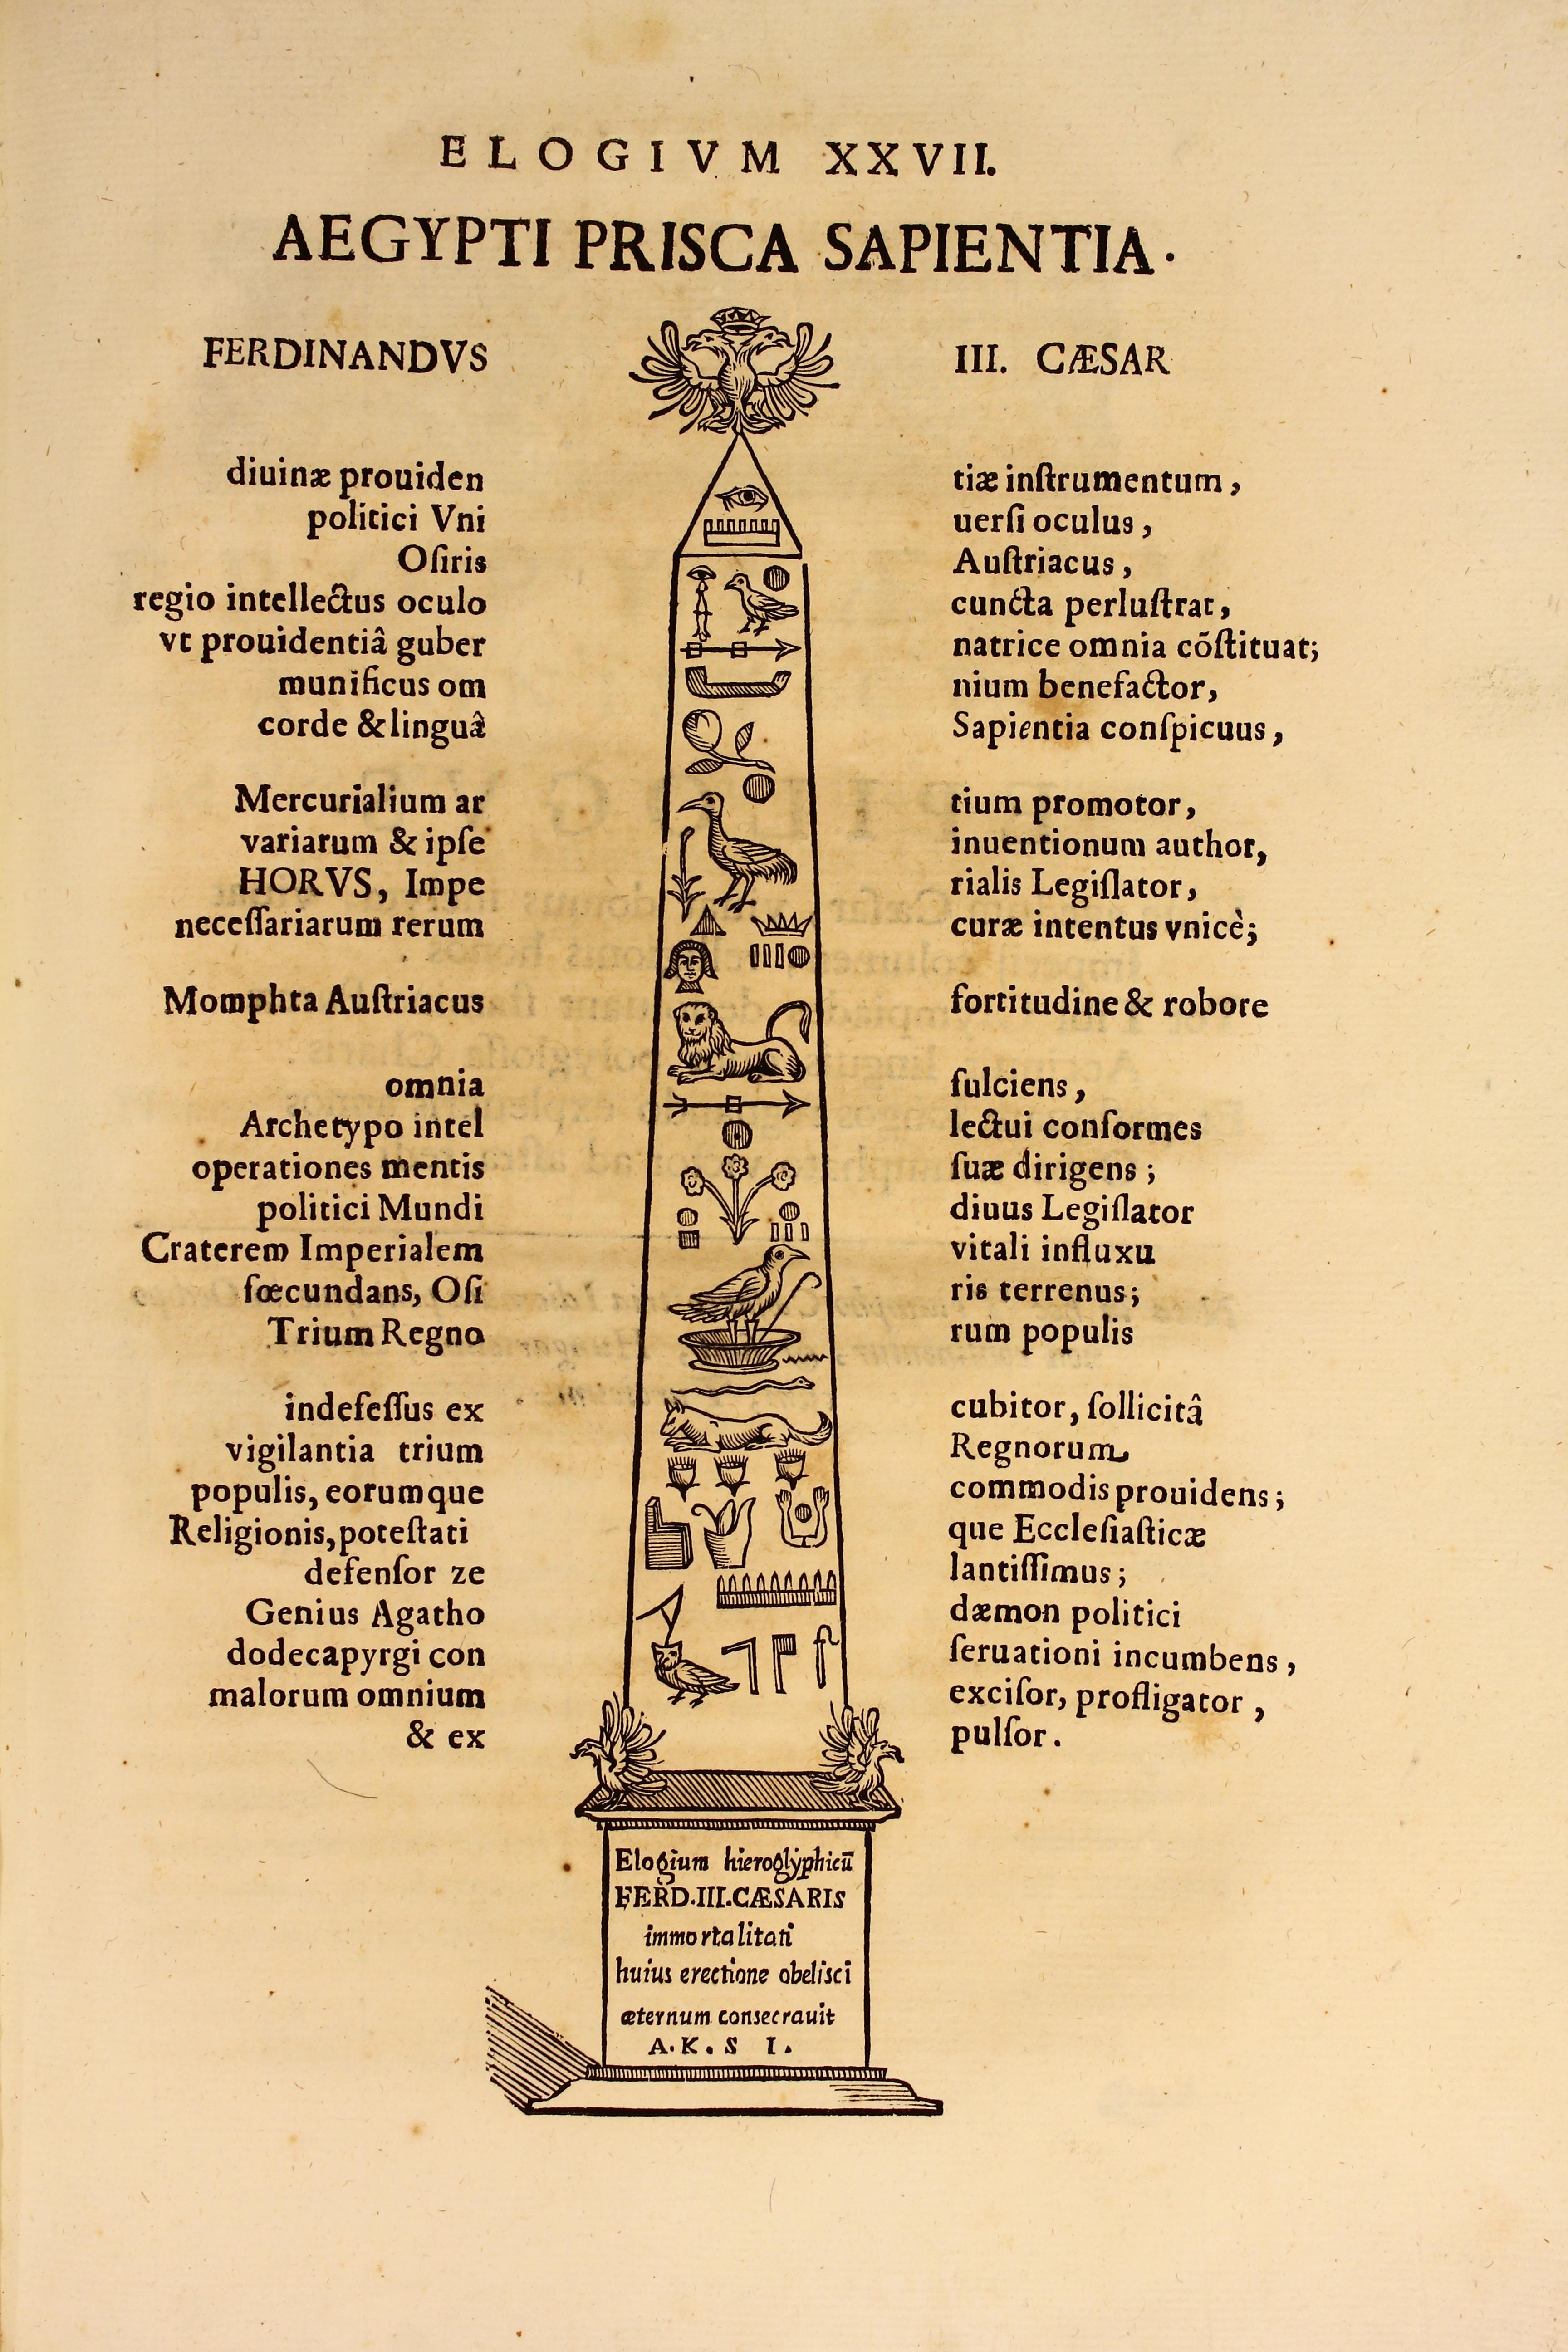 ELOGIVM XXVII.
AEGYPTI PRISCA SAPIENTIA.
FERDINANDVS III. CÆSAR
diuinæ prouiden tiæ inſtrumentum,
politici Vni uerſi oculus,
Oſiris Auſtriacus,
regio intellectus oculo cuncta perluſtrat,
vt prouidentiâ guber natrice omnia cõſtituat;
munificus om nium benefactor,
corde & linguâ Sapientia conſpicuus,
Mercurialium ar tium promotor,
variarum & ipſe inuentionum author,
HORVS, Impe rialis Legiſlator,
neceſſariarum rerum curæ intentus vnicè;
Momphta Auſtriacus fortitudine & robore
omnia fulciens,
Archetypo intel lectui conformes
operationes mentis ſuæ dirigens;
politici Mundi diuus Legiſlator
Craterem Imperialem vitali influxu
fœcundans, Oſi ris terrenus;
Trium Regno rum populis
indefeſſus ex cubitor, ſollicitâ
vigilantia trium Regnorum
populis, eorumque commodis prouidens;
Religionis, poteſtati que Eccleſiaſticæ
defenſor ze lantiſſimus;
Genius Agatho dæmon politici
dodecapyrgi con ſeruationi incumbens,
malorum omnium exciſor, profligator,
& ex pulſor.
Elogium hieroglyphicũ
FERD. III. CÆSARIS
immortalitati
huius erectione obelisci
æternum consecrauit
A. K. S I.